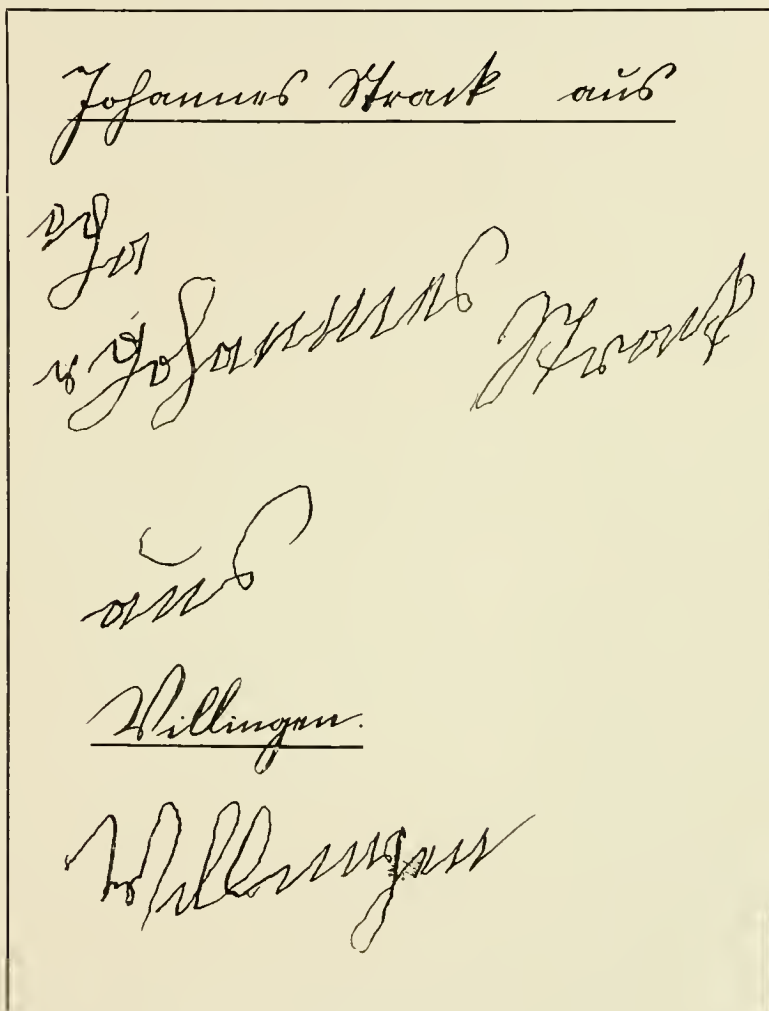 Johannes Strack aus
Jo
Johannes Strack
aus
Willingen.
Willingen